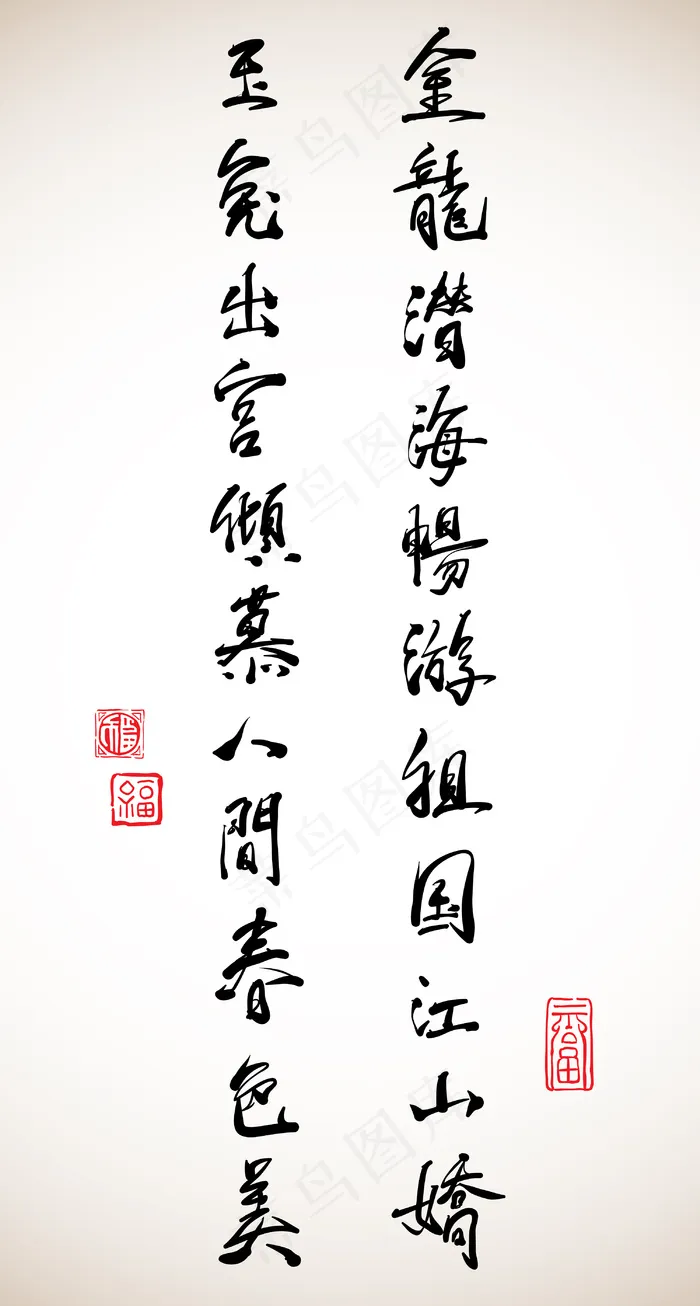 金龍潛海暢游祖国江山嬌
玉兔出宮傾慕人間春色美
福